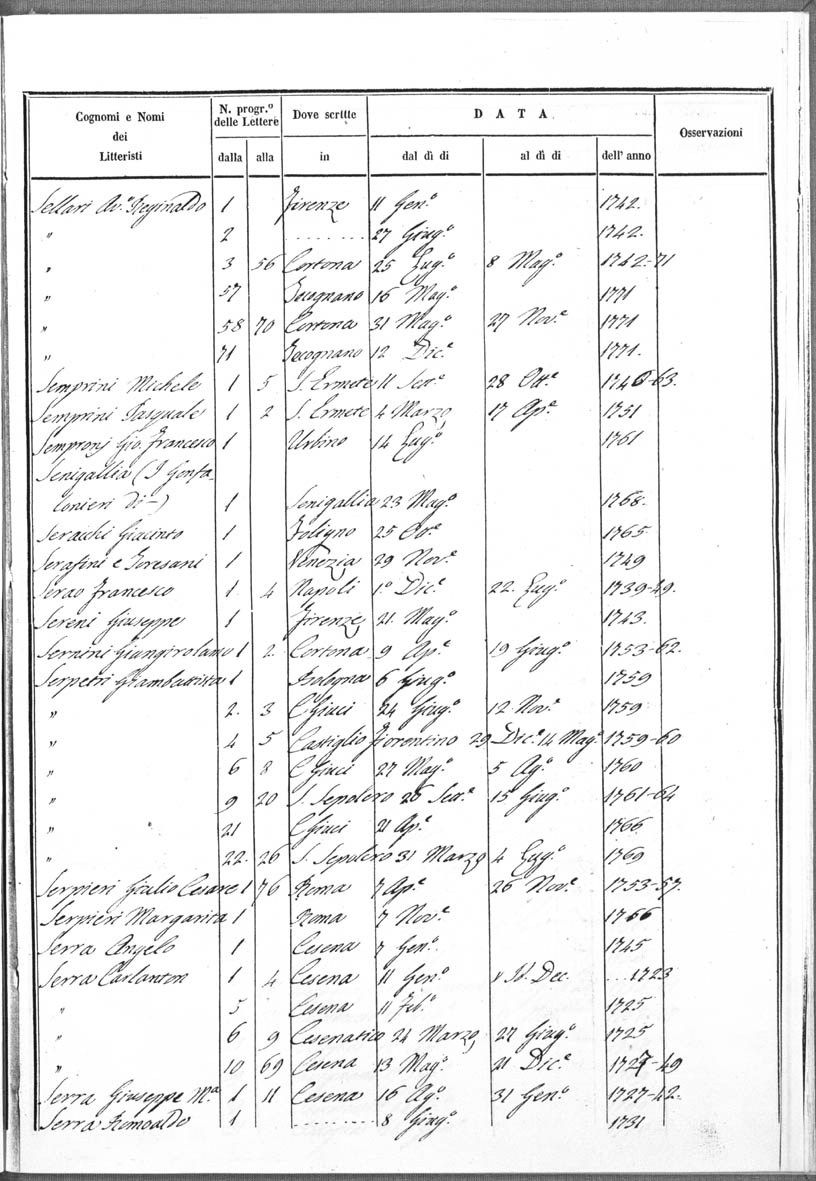 Cognomi e Nomi dei Litteristi | N. progr.º delle Lettere | Dove scritte in | DATA | Osservazioni
dalla | alla | dal dì di | al dì di | dell' anno
Sellari Av.º Reginaldo 1 Firenze 11 Gen.º 1742.
" 2 ......... 27 Giug.º 1742.
" 3 56 Cortona 25 Lug.º 8 Mag.º 1742-71
" 57 Pecognano 16 Mag.º 1771
" 58 70 Cortona 31 Mag.º 27 Nov.e 1771
" 71 Pecognano 12 Dic.e 1771.
Semprini Michele 1 5 S. Ermete 11 Sett.e 28 Ott.e 1740-63.
Semprini Pasquale 1 2 S. Ermete 4 Marzo 17 Ap.e 1751
Sempronj Gio. Francesco 1 Urbino 14 Lug.º 1761
Senigallia (I Gonfa-
lonieri di -) 1 Senigallia 23 Mag.º 1768.
Seracchi Giacinto 1 Foligno 25 Ott.e 1765
Serafini e Toresani 1 Venezia 29 Nov.e 1749
Serao Francesco 1 4 Napoli 1.º Dic.e 22. Lug.º 1739-49.
Sereni Giuseppe 1 Firenze 21. Mag.º 1743.
Sernini Giangirolamo 1 2. Cortona 9 Ap.e 19 Giug.º 1753-62.
Serpetri Giambattista 1 Bologna 6 Giug.º 1759
" 2. 3 C Giuci 24 Giug.º 12 Nov.e 1759
" 4 5 Castiglio Fiorentino 29 Dic.e 14 Mag.º 1759-60
" 6 8 C Giuci 27 Mag.º 5 Ag.º 1760
" 9 20 S. Sepolcro 26 Sett.e 15 Giug.º 1761-64
" 21 C Giuci 21 Ap.e 1766
" 22. 26 S. Sepolcro 31 Marzo 4 Lug.º 1769
Serpieri Giulio Cesare 1 76 Roma 7 Ap.e 26 Nov.e 1753-57.
Serpieri Margarita 1 Roma 7 Nov.e 1766
Serra Angelo 1 Cesena 7 Gen.º 1745
Serra Carlanton 1 4 Cesena 11 Gen.º v Id. Dec. ...1723
" 5 Cesena 11 Feb.º 1725
" 6 9 Cesenatico 24 Marzo 27 Giug.º 1725
" 10 69 Cesena 13 Mag.º 21 Dic.e 1727-49
Serra Giuseppe M.a 1 11 Cesena 16 Ag.º 31 Gen.º 1727-42.
Serra Romoaldo 1 ......... 8 Giug.º 1731